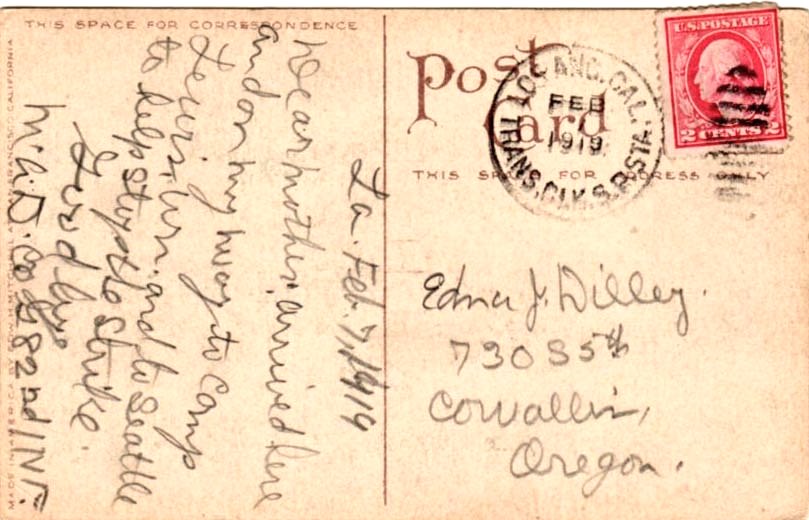 THIS SPACE FOR CORRESPONDENCE
La. Feb. 7, 1919
Dear mother, arrived here
and on my way to Camp
Lewis, Wn. and to Seattle
to help stop the strike.
Good bye
W.A.D. Co 82nd INF.
Post
Card
LOS ANG. CAL.
FEB
1919
TRANS. CLK. S.P. STA.
U.S. POSTAGE
2 CENTS 2
THIS SPACE FOR ADDRESS ONLY
Edna J. Dilley.
730 S 5th
Corvallis,
Oregon.
MADE IN AMERICA BY EDW. H. MITCHELL SAN FRANCISCO CALIFORNIA